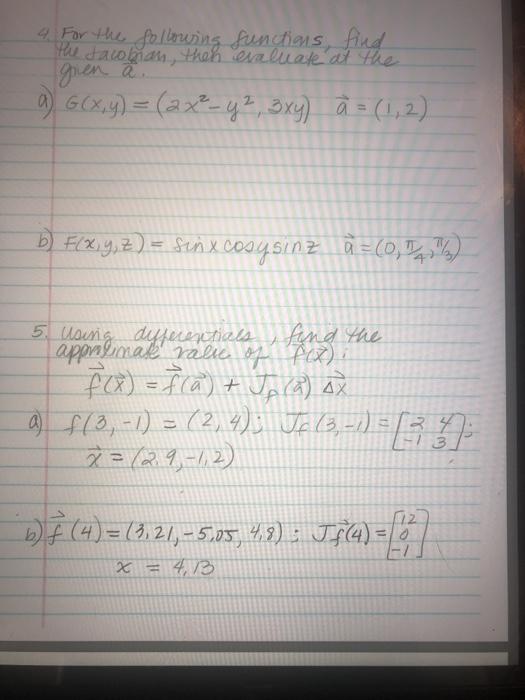 4. For the following functions, find
the Jacobian, then evaluate at the
given a⃗.
a) G(x,y) = (2x²-y², 3xy) a⃗ = (1,2)
b) F(x,y,z) = sinxcosysinz a⃗ = (0, π/4, π/3)
5. Using differentials, find the
approximate value of f(x⃗):
f⃗(x⃗) = f⃗(a⃗) + J_f(a⃗) Δx⃗
a) f(3,-1) = (2,4); Jf(3,-1) = [2 4; -1 3];
x⃗ = (2.9,-1.2)
b) f⃗(4) = (3.21,-5.05, 4.8); Jf⃗(4) = [12; 0; -1]
x = 4.13